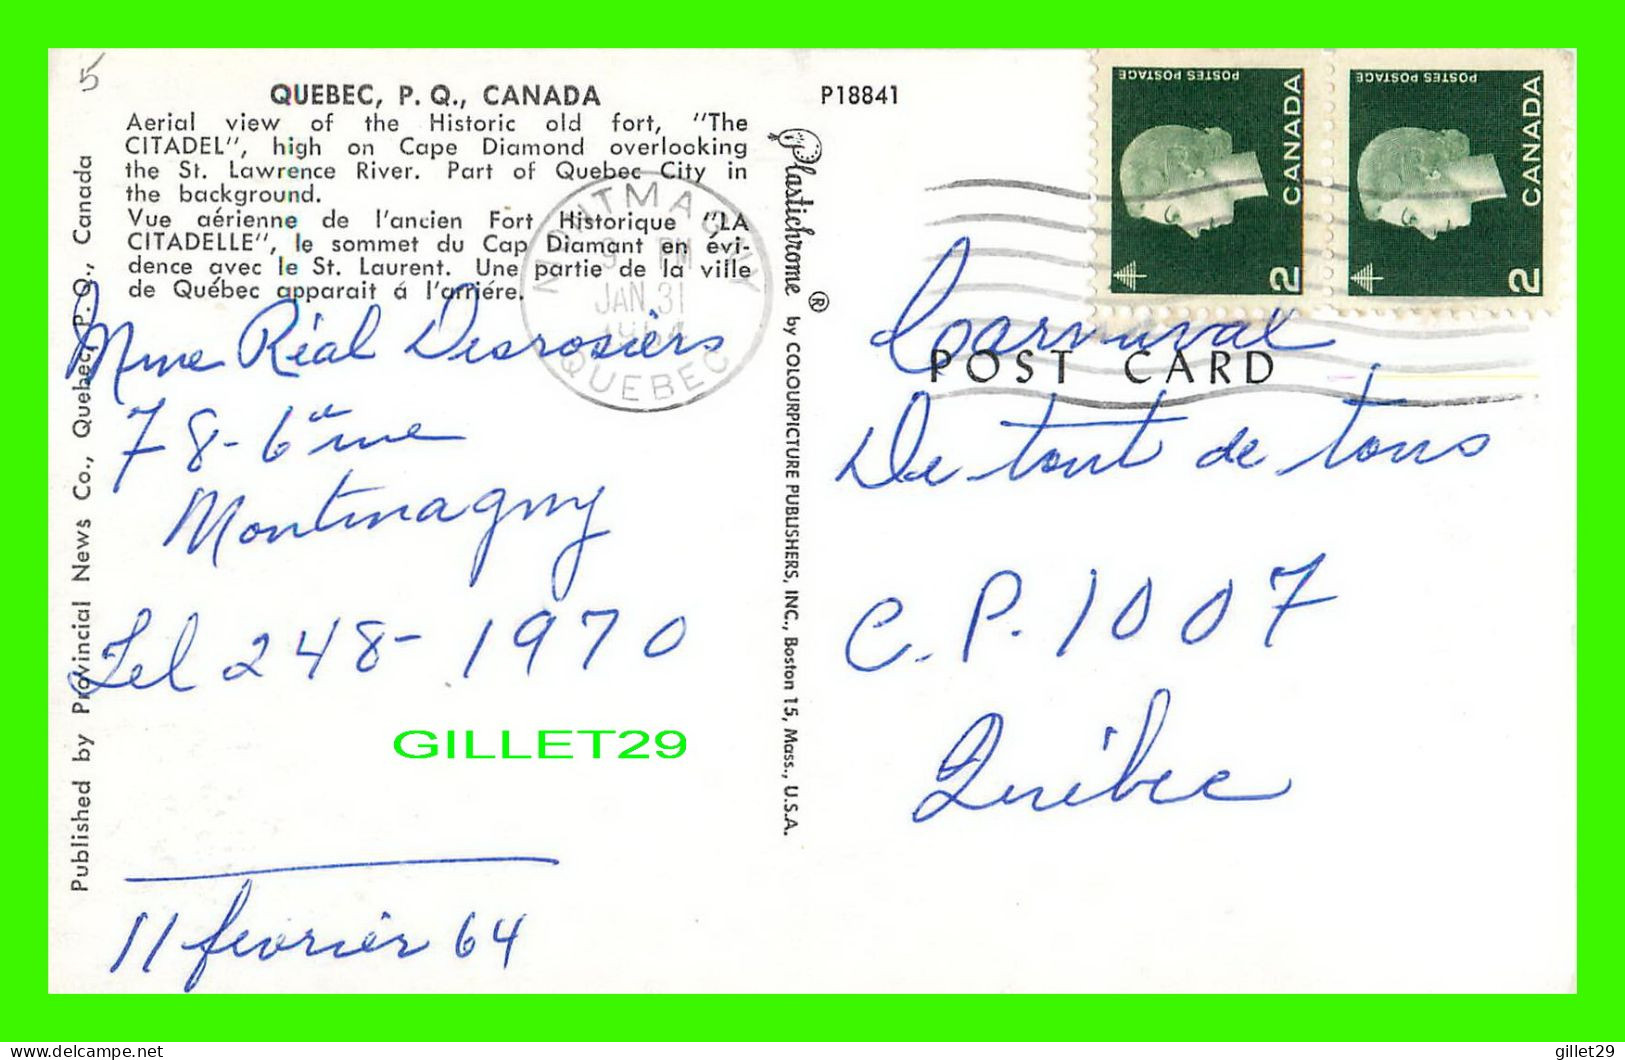 5
QUEBEC, P. Q., CANADA
Aerial view of the Historic old fort, "The
CITADEL", high on Cape Diamond overlocking
the St. Lawrence River. Part of Quebec City in
the background.
Vue aérienne de l'ancien Fort Historique "LA
CITADELLE", le sommet du Cap Diamant en évi-
dence avec le St. Laurent. Une partie de la ville
de Québec apparait á l'arriére.
Mme Réal Desrosiers
78-6ième
Montmagny
Tel 248-1970
11 février 64
Published by Provincial News Co., Quebec, P. Q., Canada
MONTMAGNY
9 PM
JAN 31
1964
QUEBEC
P18841
Plastichrome ® by COLOURPICTURE PUBLISHERS, INC., Boston 15, Mass., U.S.A.
POSTES POSTAGE
CANADA
2
POSTES POSTAGE
CANADA
2
POST CARD
Carnaval
De tout de tous
C.P. 1007
Québec
GILLET29
delcampe.net
gillet29